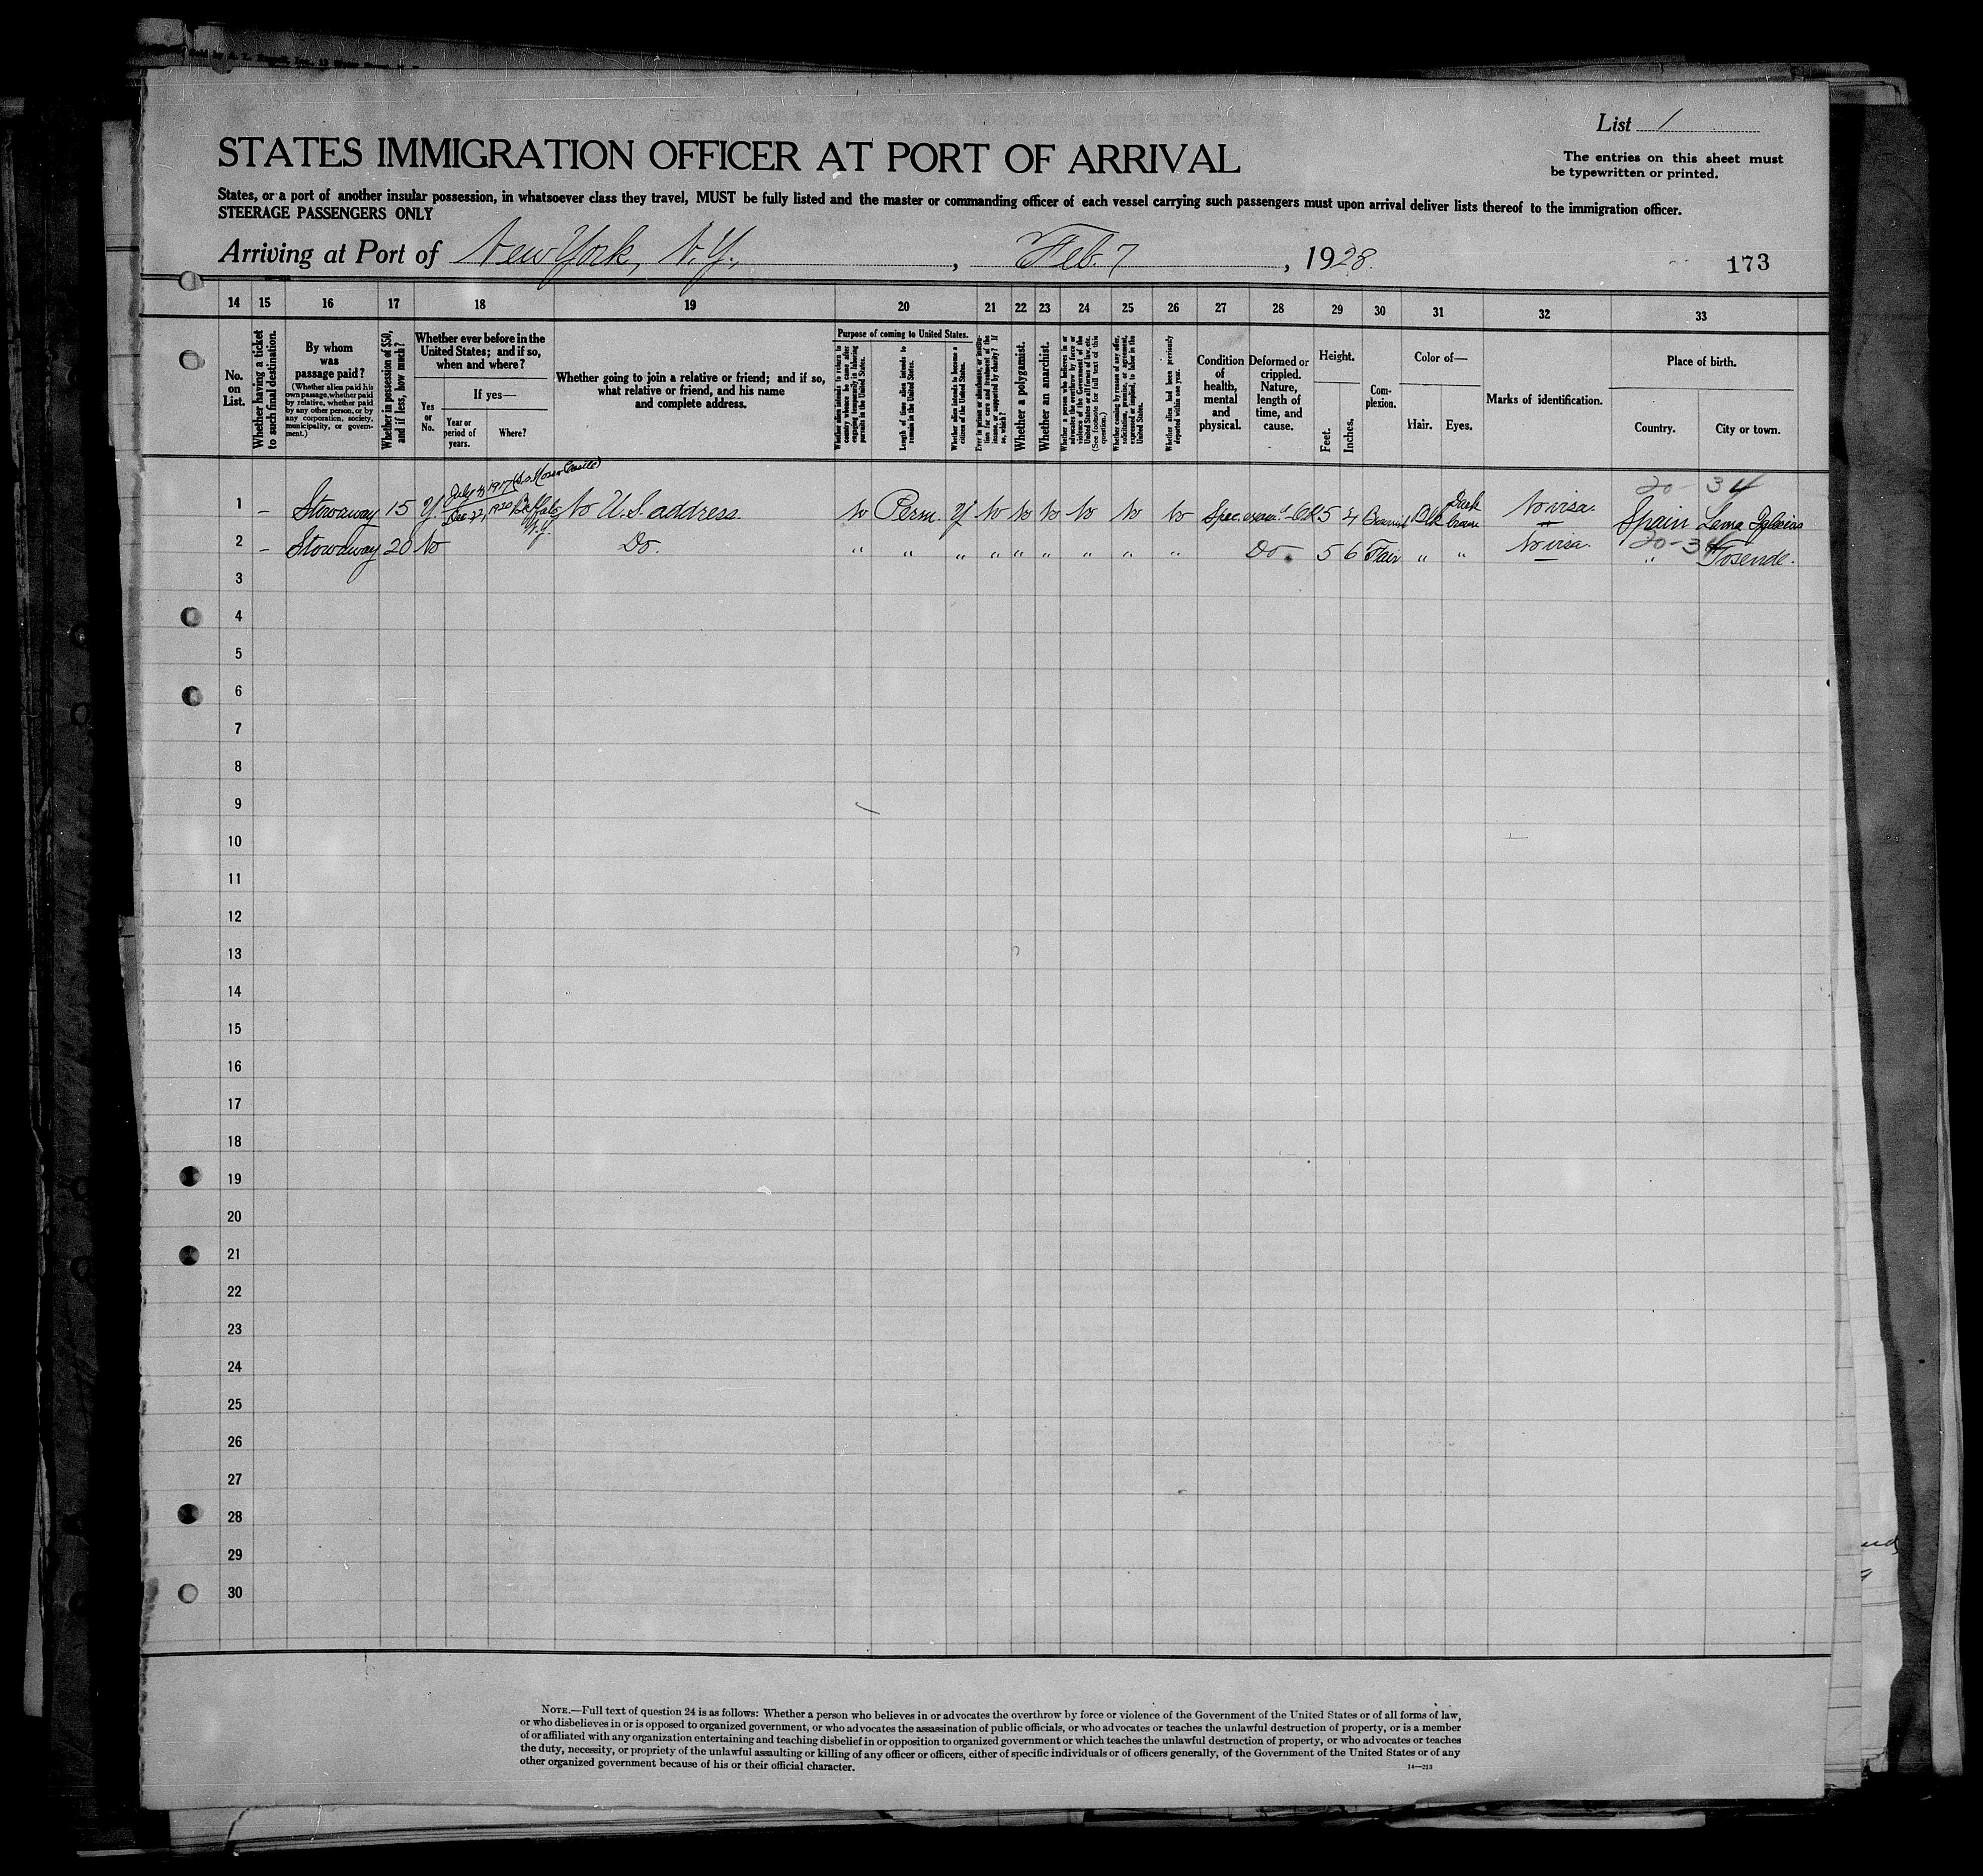 List 1
STATES IMMIGRATION OFFICER AT PORT OF ARRIVAL
The entries on this sheet must
be typewritten or printed.
States, or a port of another insular possession, in whatsoever class they travel, MUST be fully listed and the master or commanding officer of each vessel carrying such passengers must upon arrival deliver lists thereof to the immigration officer.
STEERAGE PASSENGERS ONLY
Arriving at Port of New York, N.Y., , Feb. 7 , 1928.
173
14 15 16 17 18 19 20 21 22 23 24 25 26 27 28 29 30 31 32 33
No. on List.
Whether having a ticket to such final destination.
By whom was passage paid?
(Whether alien paid his own passage, whether paid by relative, whether paid by any other person, or by any corporation, society, municipality, or government.)
Whether in possession of $50, and if less, how much?
Whether ever before in the United States; and if so, when and where?
Yes or No.
If yes—
Year or period of years.
Where?
Whether going to join a relative or friend; and if so, what relative or friend, and his name and complete address.
Purpose of coming to United States.
Whether alien intends to return to country whence he came after engaging temporarily in laboring pursuits in the United States.
Length of time alien intends to remain in the United States.
Whether alien intends to become a citizen of the United States.
Ever in prison or almshouse, or institution for care and treatment of the insane, or supported by charity? If so, which?
Whether a polygamist.
Whether an anarchist.
Whether a person who believes in or advocates the overthrow by force or violence of the Government of the United States or all forms of law, etc. (See footnote for full text of this question.)
Whether coming by reason of any offer, solicitation, promise, or agreement, expressed or implied, to labor in the United States.
Whether alien had been previously deported within one year.
Condition of health, mental and physical.
Deformed or crippled. Nature, length of time, and cause.
Height.
Feet.
Inches.
Complexion.
Color of—
Hair.
Eyes.
Marks of identification.
Place of birth.
Country.
City or town.
20- 34
July 1917 (S.S. Morro Castle)
1 – Stowaway 15 Y. Dec 22, 1920 Buffalo N.Y. No U.S. address. No Perm. Y No No No No No No Spec. OK 5 4 Blk Dark brown No visa. Spain Lama Iglesias
20-34
2 – Stowaway 20 No Do. " " " " " " " " " Do. 5 6 Fair " " No visa. " Tosende.
3
4
5
6
7
8
9
10
11
12
13
14
15
16
17
18
19
20
21
22
23
24
25
26
27
28
29
30
NOTE.—Full text of question 24 is as follows: Whether a person who believes in or advocates the overthrow by force or violence of the Government of the United States or of all forms of law,
or who disbelieves in or is opposed to organized government, or who advocates the assassination of public officials, or who advocates or teaches the unlawful destruction of property, or is a member
of or affiliated with any organization entertaining and teaching disbelief in or opposition to organized government or which teaches the unlawful destruction of property, or who advocates or teaches
the duty, necessity, or propriety of the unlawful assaulting or killing of any officer or officers, either of specific individuals or of officers generally, of the Government of the United States or of any
other organized government because of his or their official character.
14—213